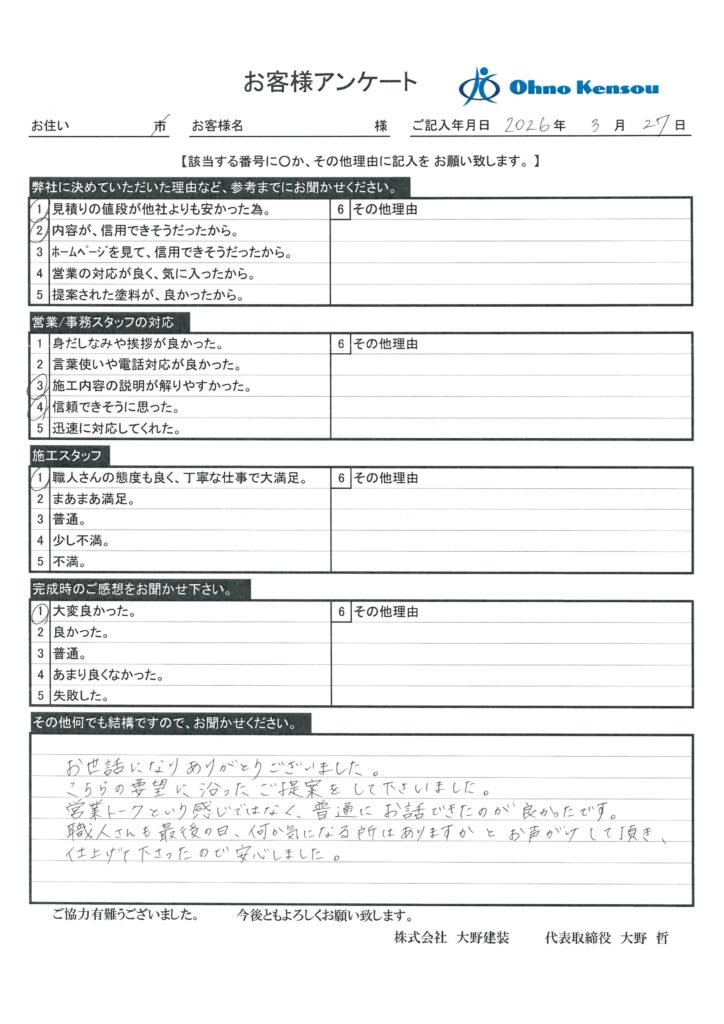 お客様アンケート
Ohno Kensou
お住い 市 お客様名 様 ご記入年月日 2026年 3月 27日
【該当する番号に〇か、その他理由に記入を お願い致します。】
弊社に決めていただいた理由など、参考までにお聞かせください。
1 見積りの値段が他社よりも安かった為。 6 その他理由
2 内容が、信用できそうだったから。
3 ﾎｰﾑﾍﾟｰｼﾞを見て、信用できそうだったから。
4 営業の対応が良く、気に入ったから。
5 提案された塗料が、良かったから。
営業/事務スタッフの対応
1 身だしなみや挨拶が良かった。 6 その他理由
2 言葉使いや電話対応が良かった。
3 施工内容の説明が解りやすかった。
4 信頼できそうに思った。
5 迅速に対応してくれた。
施工スタッフ
1 職人さんの態度も良く、丁寧な仕事で大満足。 6 その他理由
2 まあまあ満足。
3 普通。
4 少し不満。
5 不満。
完成時のご感想をお聞かせ下さい。
1 大変良かった。 6 その他理由
2 良かった。
3 普通。
4 あまり良くなかった。
5 失敗した。
その他何でも結構ですので、お聞かせください。
お世話になりありがとうございました。
こちらの要望に沿ったご提案をして下さいました。
営業トークという感じではなく、普通にお話できたのが良かったです。
職人さんも最後の日、何か気になる所はありますかとお声がけして頂き、
仕上げて下さったので安心しました。
ご協力有難うございました。 今後ともよろしくお願い致します。
株式会社 大野建装 代表取締役 大野 哲